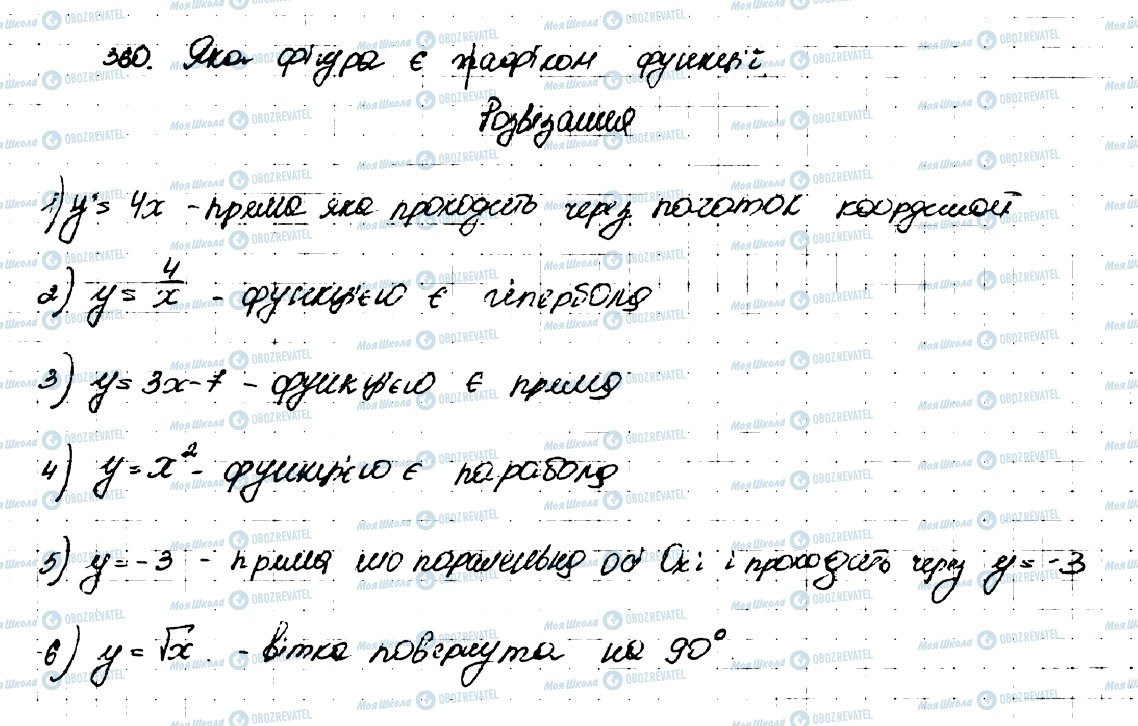 360. Яка фігура є графіком функції.
Розвізання
1) y = 4x - пряма яка проходить через початок координат
2) y = 4/x - функцією є гіпербола
3) y = 3x - 7 - функцією є пряма
4) y = x² - функцією є парабола
5) y = -3 - пряма що паралельна осі Oxi і проходить через y = -3
6) y = √x - вітка повернута на 90°